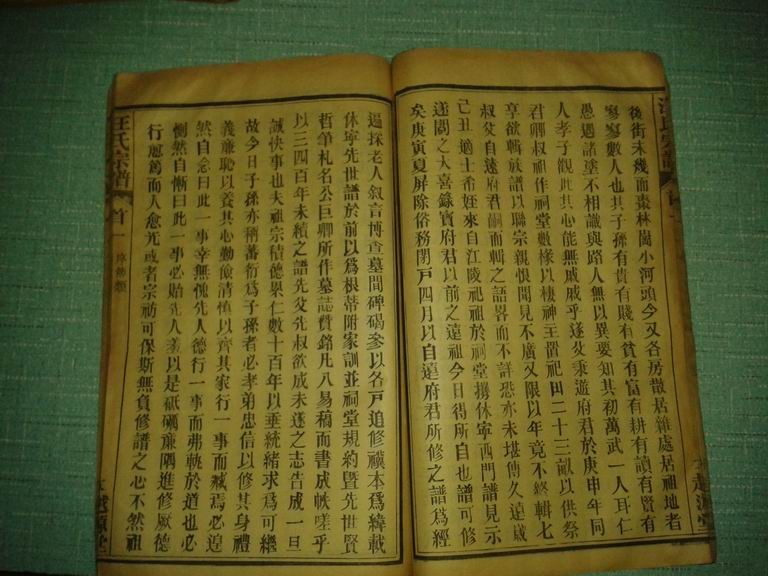 後街未幾而棗林崗小河頭今又各房散居雜處居祖地者
寥寥數人也其子孫有貴有賤有貧有富有耕有讀有賢有
愚遇諸塗不相識與路人無以異要知其初萬武一人耳仁
人孝子觀此其心能無戚戚乎遂父乘遊府君於庚申年同
君卿叔祖作祠堂數楹以棲神主置祀田二十三畝以供祭
享欲輯族譜以聯宗親恨聞見不廣又限以年竟不終輯七
叔父自遠府君嗣而輯之語畧而不詳恐亦未堪傳久遠歲
己丑適士希姪來自江陵祀祖於祠堂攜休寧西門譜見示
遂閱之大喜錄寶府君以前之遠祖今日得所自也譜可修
矣庚寅夏屏除俗務閉戸四月以自遠府君所修之譜爲經
遍探老人叙言博查墓間碑碣參以各戸追修襆本爲緯載
休寧先世譜於前以爲根蒂附家訓並祠堂規約曁先世賢
哲筆札名公巨卿所作墓誌贊銘凡八易稿而書成帙嗟乎
以三四百年未續之譜先父先叔欲成未遂之志告成一旦
誠快事也夫祖宗積德累仁數十百年以垂統緒求爲可繼
故今日子孫亦稱蕃衍爲子孫者必孝弟忠信以修其身禮
義廉恥以養其心勤儉清慎以齊其家行一事而臧焉必遑
然自念曰此一事幸無愧先人德行一事而弗軌於道也必
惻然自慚曰此一事必貽先人羞以是砥礪廉隅進修厥德
行愿篤而人愈光或者宗祊可保斯無負修譜之心不然祖
汪氏宗譜
首一
越源堂